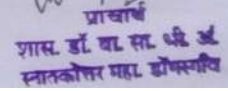 प्राचार्य
शास. डॉ. बा. सा. भी. अं
स्नातकोत्तर महा. डोंगरगांव